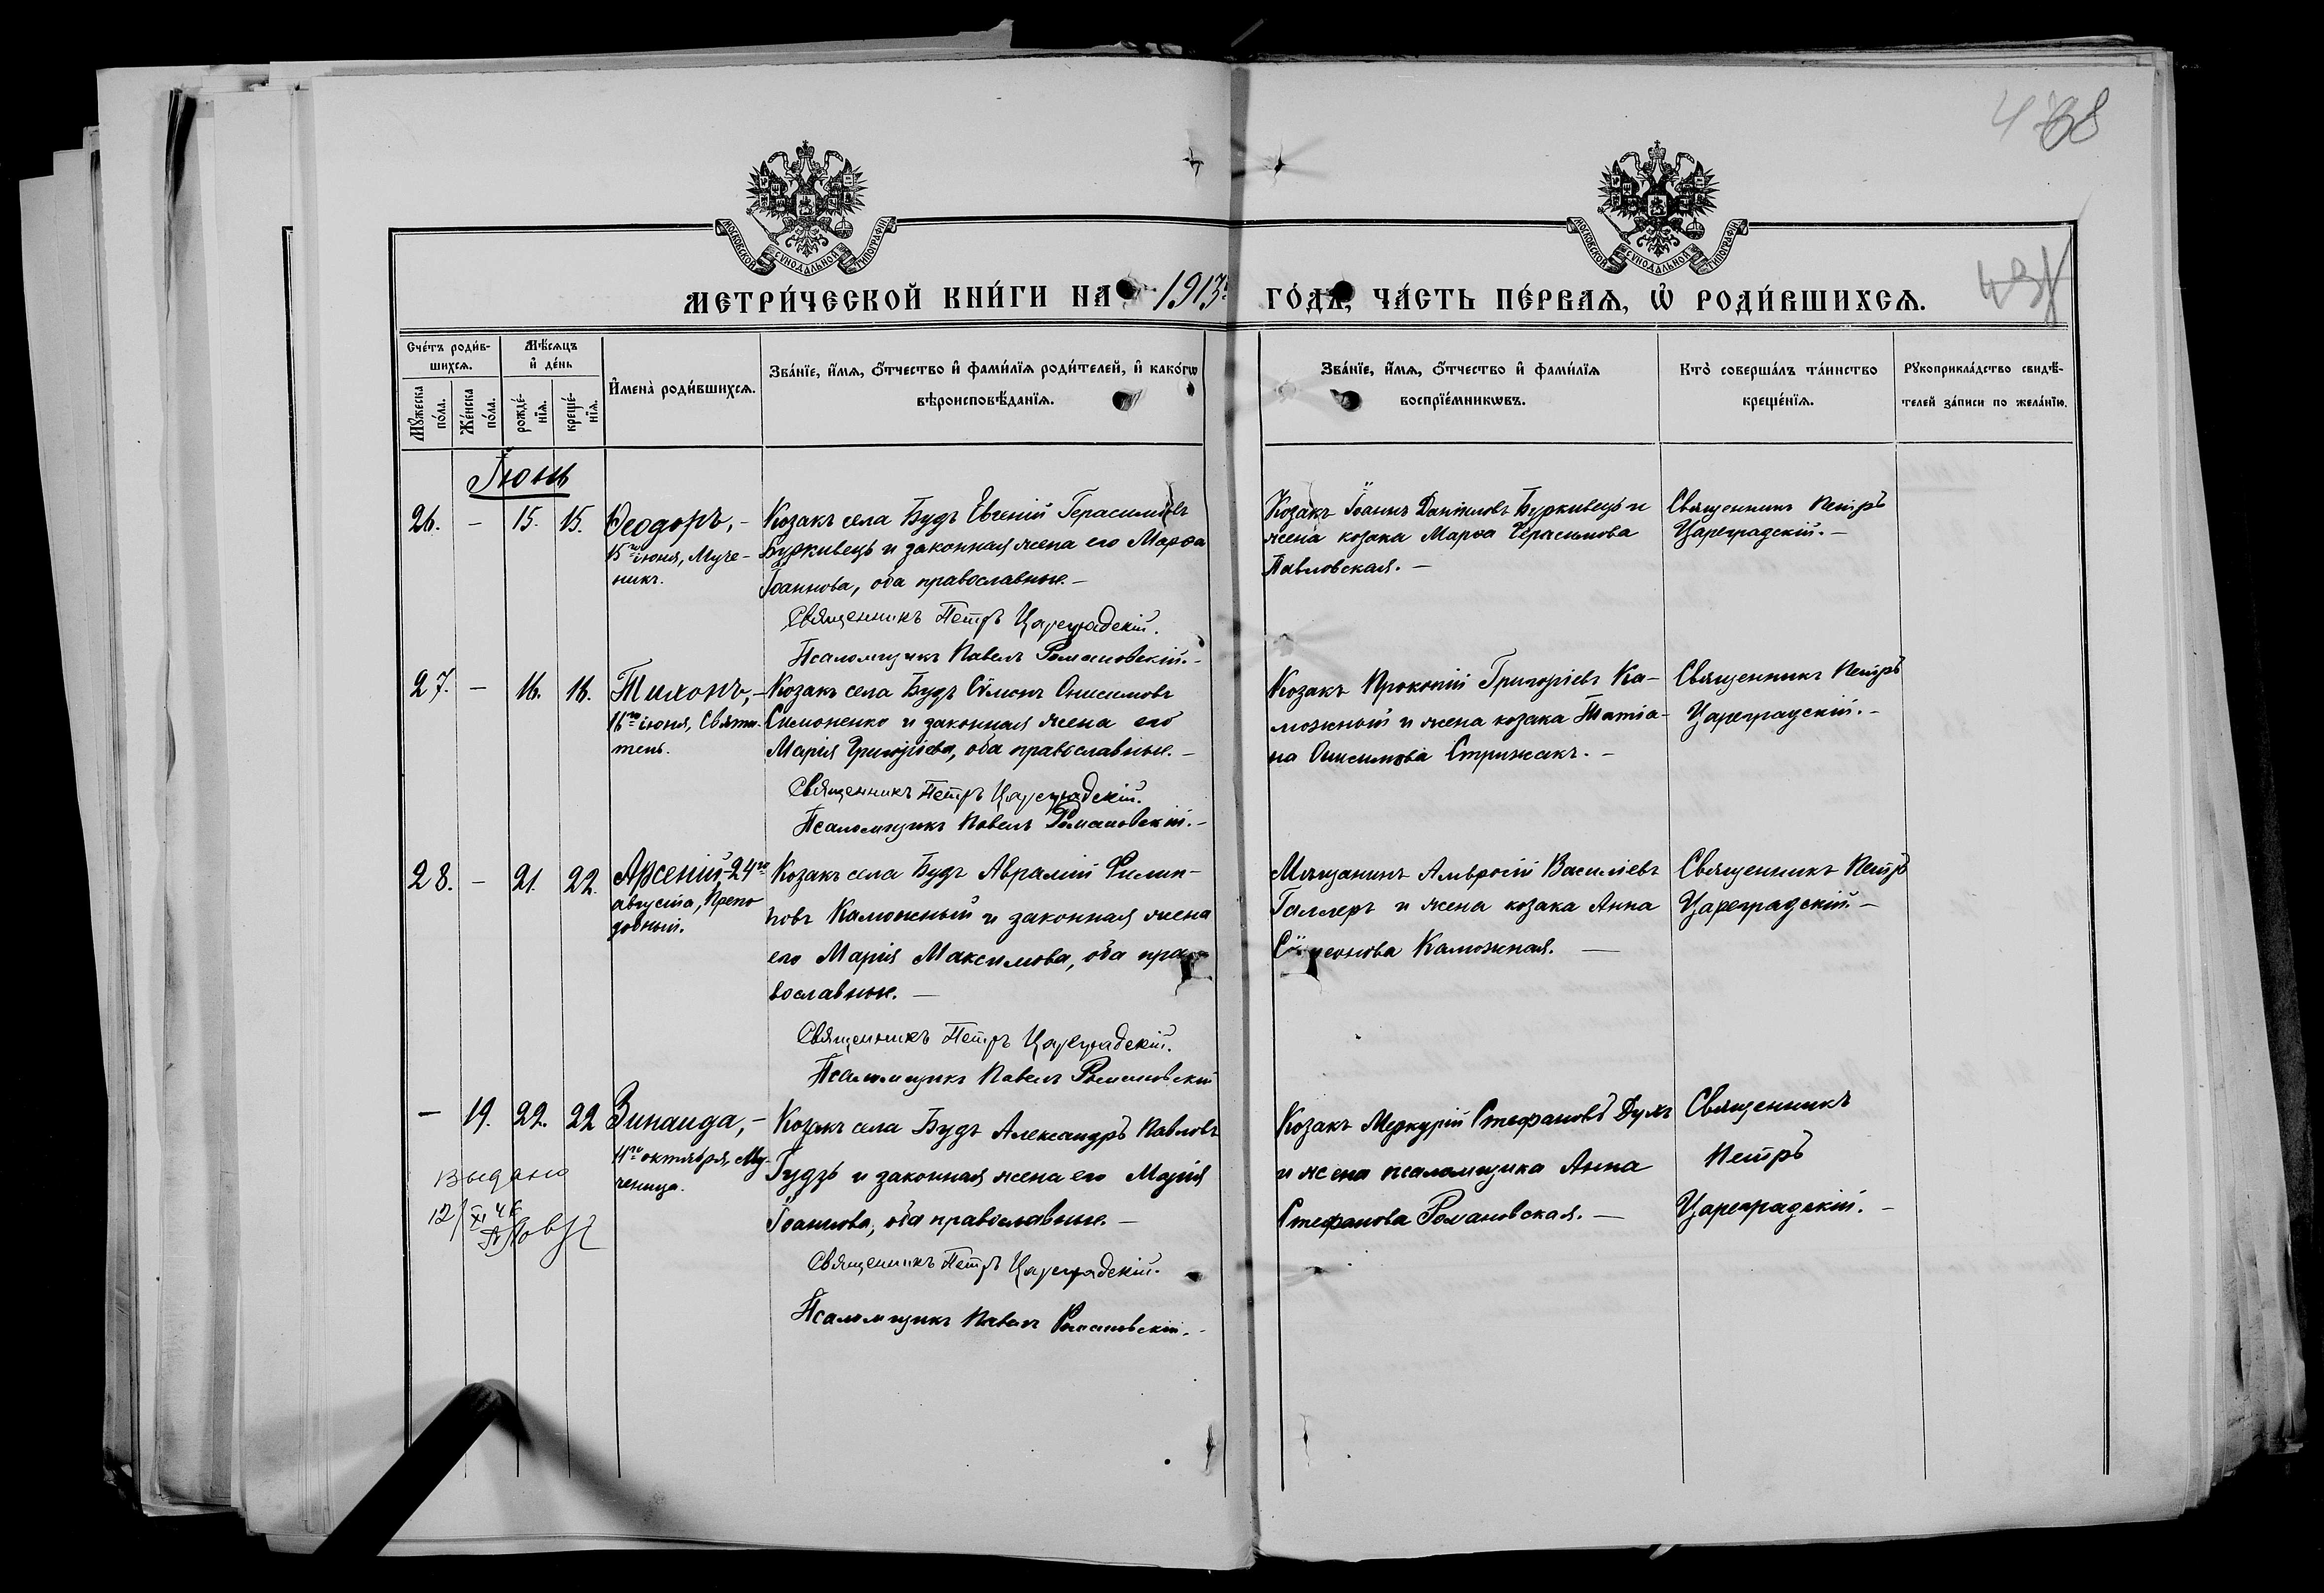 438
МОСКОВСКОЙ СѴНОДАЛЬНОЙ ТИПОГРАФІИ
МОСКОВСКОЙ СѴНОДАЛЬНОЙ ТИПОГРАФІИ
МЕТРИ́ЧЕСКОЙ КНИ́ГИ НА 1913й ГО́ДЪ, ЧА́СТЬ ПЕ́РВАѦ, Ѡ҆ РОДИ́ВШИХСѦ.
Сче́тъ роди́в-
шихсѧ.
Мѣ́сѧцъ
и҆ де́нь
Мꙋ́жеска
по́ла.
Же́нска
по́ла.
рожде́-
нїѧ.
креще́-
нїѧ.
И҆мена̀ роди́вшихсѧ.
Зва́нїе, и҆́мѧ, ѻ҆́тчество и҆ фами́лїѧ роди́телей, и҆ како́гѡ
вѣроисповѣ́данїѧ.
Зва́нїе, и҆́мѧ, ѻ҆́тчество и҆ фами́лїѧ
воспрїе́мникѡвъ.
Кто̀ соверша́лъ та́инство
креще́нїѧ.
Рꙋкоприкла́дство свидѣ́-
телей за́писи по жела́нїю.
Іюнь
26. — 15. 15. Ѳеодоръ, –
15го іюня, Муче-
никъ.
Козакъ села Будъ Евгеній Герасимовъ
Буркивецъ и законная жена его Марѳа
Іоаннова, оба православные. –
Священникъ Петръ Цареградскій.
Псаломщикъ Павелъ Романовскій. –
Козакъ Іоаннъ Даніиловъ Буркивецъ и
жена козака Марѳа Герасимова
Павловская. –
Священникъ Петръ
Цареградскій. –
27. — 16. 16. Тихонъ, –
16го іюня, Святи-
тель.
Козакъ села Будъ Сѵмонъ Онисимовъ
Симоненко и законная жена его
Марія Григоріева, оба православные. –
Священникъ Петръ Цареградскій.
Псаломщикъ Павелъ Романовскій. –
Козакъ Прокопій Григоріевъ Ка-
можный и жена козака Татіа-
на Онисимова Стрижакъ. –
Священникъ Петръ
Цареградскій. –
28. — 21. 22. Арсеній, 24го
августа, Препо
добный.
Козакъ села Будъ Аврамій Филип-
повъ Каможный и законная жена
его Марія Максимова, оба пра-
вославные. —
Священникъ Петръ Цареградскій.
Псаломщикъ Павелъ Романовскій
Мѣщанинъ Амвросій Василіевъ
Галлеръ и жена козака Анна
Сѵмеонова Каможная. —
Священникъ Петръ
Цареградскій. –
— 19. 22. 22 Зинаида, –
11го октября, Му-
ченица.
Козакъ села Будъ Александръ Павловъ
Гудзь и законная жена его Марія
Іоаннова, оба православные. —
Священникъ Петръ Цареградскій.
Псаломщикъ Павелъ Романовскій. –
Козакъ Меркурій Стефановъ Думъ
и жена псаломщика Анна
Стефанова Романовская. —
Священникъ
Петръ
Цареградскій. –
Выдано
12/XI 46